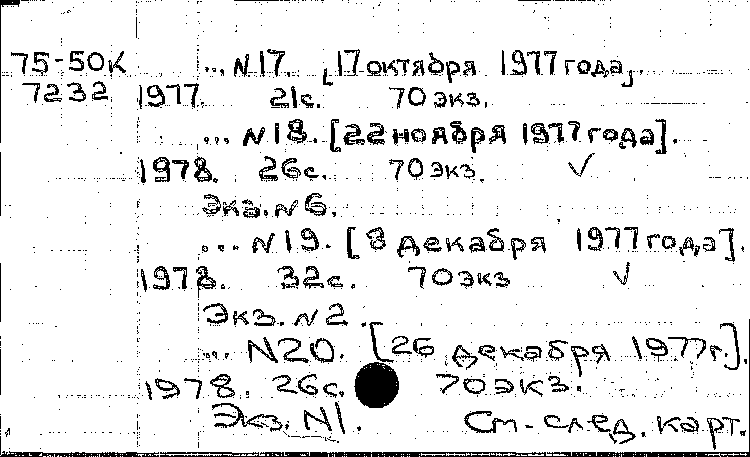 75-50К ... N17. [17 октября 1977 года].
7232 1977. 21с. 70 экз.
... N18. [22 ноября 1977 года].
1978. 26с. 70 экз. ✓
Экз. N6.
... N19. [8 декабря 1977 года].
1978. 32с. 70 экз ✓
Экз. N2.
... N20. [26 декабря 1977г.].
1978. 26с. 70 экз.
Экз. N1. См. след. карт.